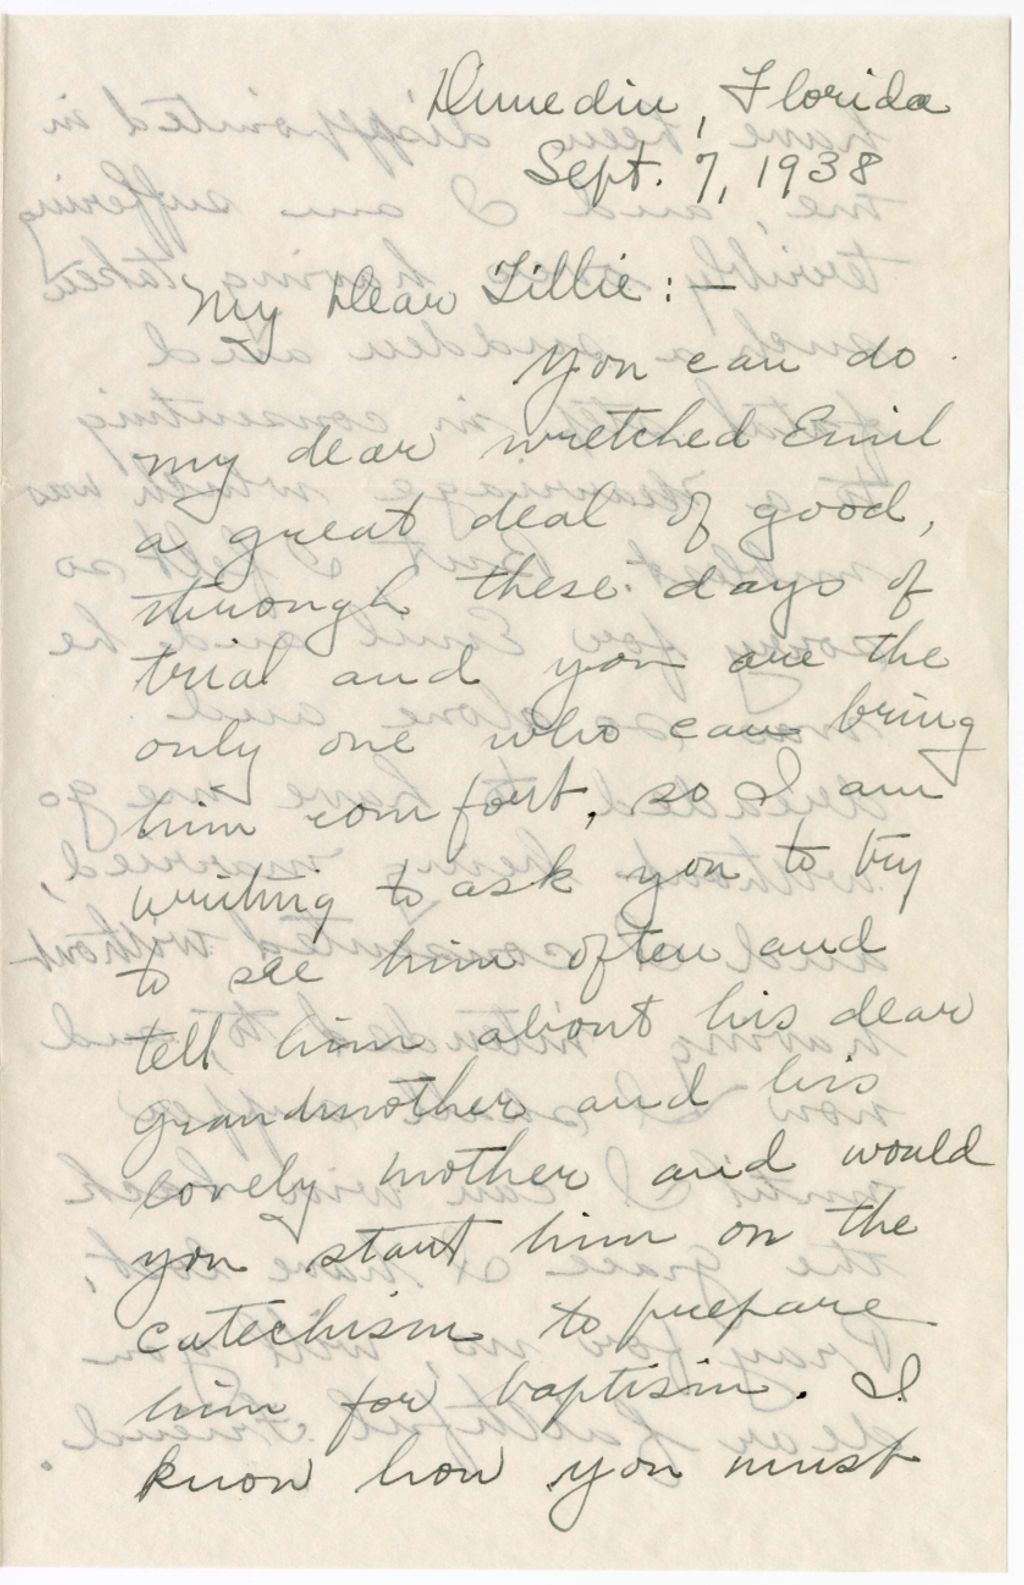 Dunedin, Florida
Sept. 7, 1938
My Dear Tillie: —
You can do
my dear wretched Emil
a great deal of good,
through these days of
trial and you are the
only one who can bring
him comfort, so I am
writing to ask you to try
to see him often and
tell him about his dear
grandmother and his
lovely mother and would
you start him on the
catechism to prepare
him for baptism. I
know how you must